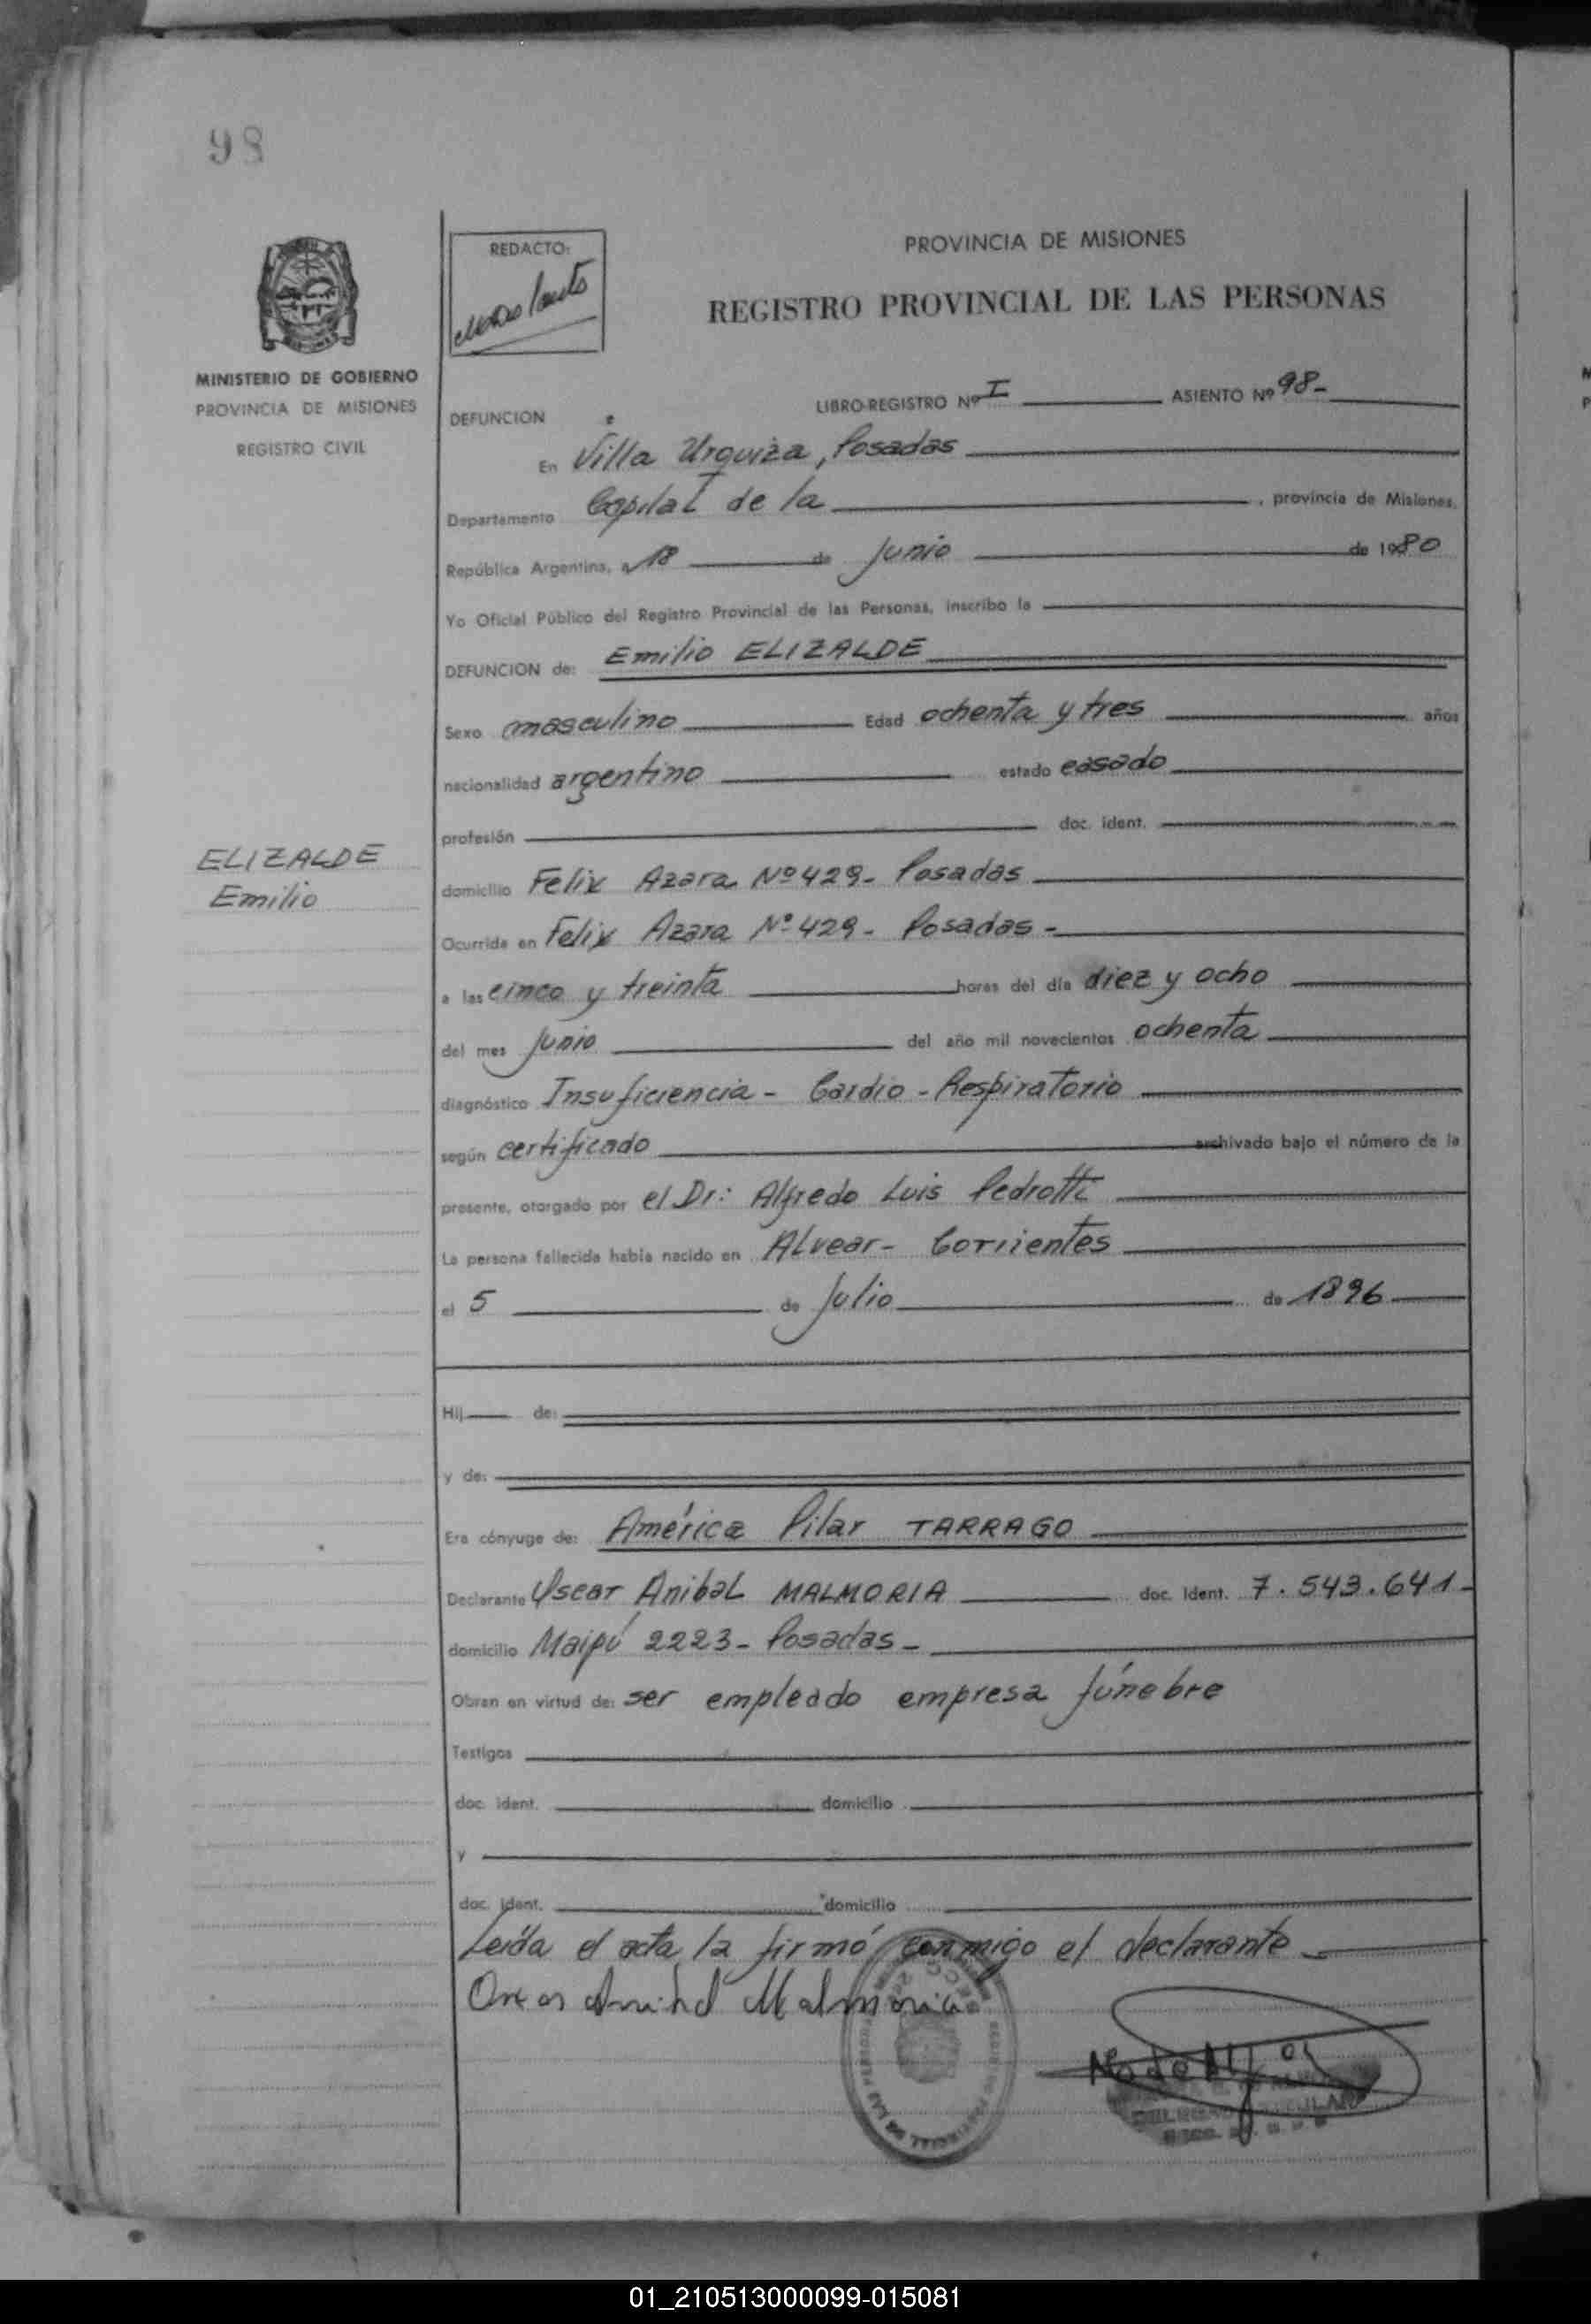 98
MINISTERIO DE GOBIERNO
PROVINCIA DE MISIONES
REGISTRO CIVIL
ELIZALDE
Emilio
REDACTO:
PROVINCIA DE MISIONES
REGISTRO PROVINCIAL DE LAS PERSONAS
DEFUNCION LIBRO-REGISTRO Nº I ASIENTO Nº 98-
En Villa Urquiza, Posadas
Departamento Capital de la , provincia de Misiones.
República Argentina, a 18 de Junio de 1980
Yo Oficial Público del Registro Provincial de las Personas, inscribo la
DEFUNCION de: Emilio ELIZALDE
Sexo masculino Edad ochenta y tres años
nacionalidad argentino estado casado
profesión doc. ident.
domicilio Felix Azara Nº 429- Posadas
Ocurrida en Felix Azara Nº 429- Posadas-
a las cinco y treinta horas del día diez y ocho
del mes Junio del año mil novecientos ochenta
diagnóstico Insuficiencia - Cardio - Respiratorio
según certificado archivado bajo el número de la
presente, otorgado por el Dr: Alfredo Luis Pedrotti
La persona fallecida había nacido en Alvear- Corrientes
el 5 de Julio de 1896
Hij de:
y de:
Era cónyuge de: América Pilar TARRAGO
Declarante Oscar Anibal MALMORIA doc. ident. 7.543.641-
domicilio Maipú 2223- Posadas-
Obran en virtud de: ser empleado empresa fúnebre
Testigos
doc. ident. domicilio
y
doc. ident. domicilio
Leída el acta, la firmó conmigo el declarante
Oscar Anibal Malmoria
01_210513000099-015081